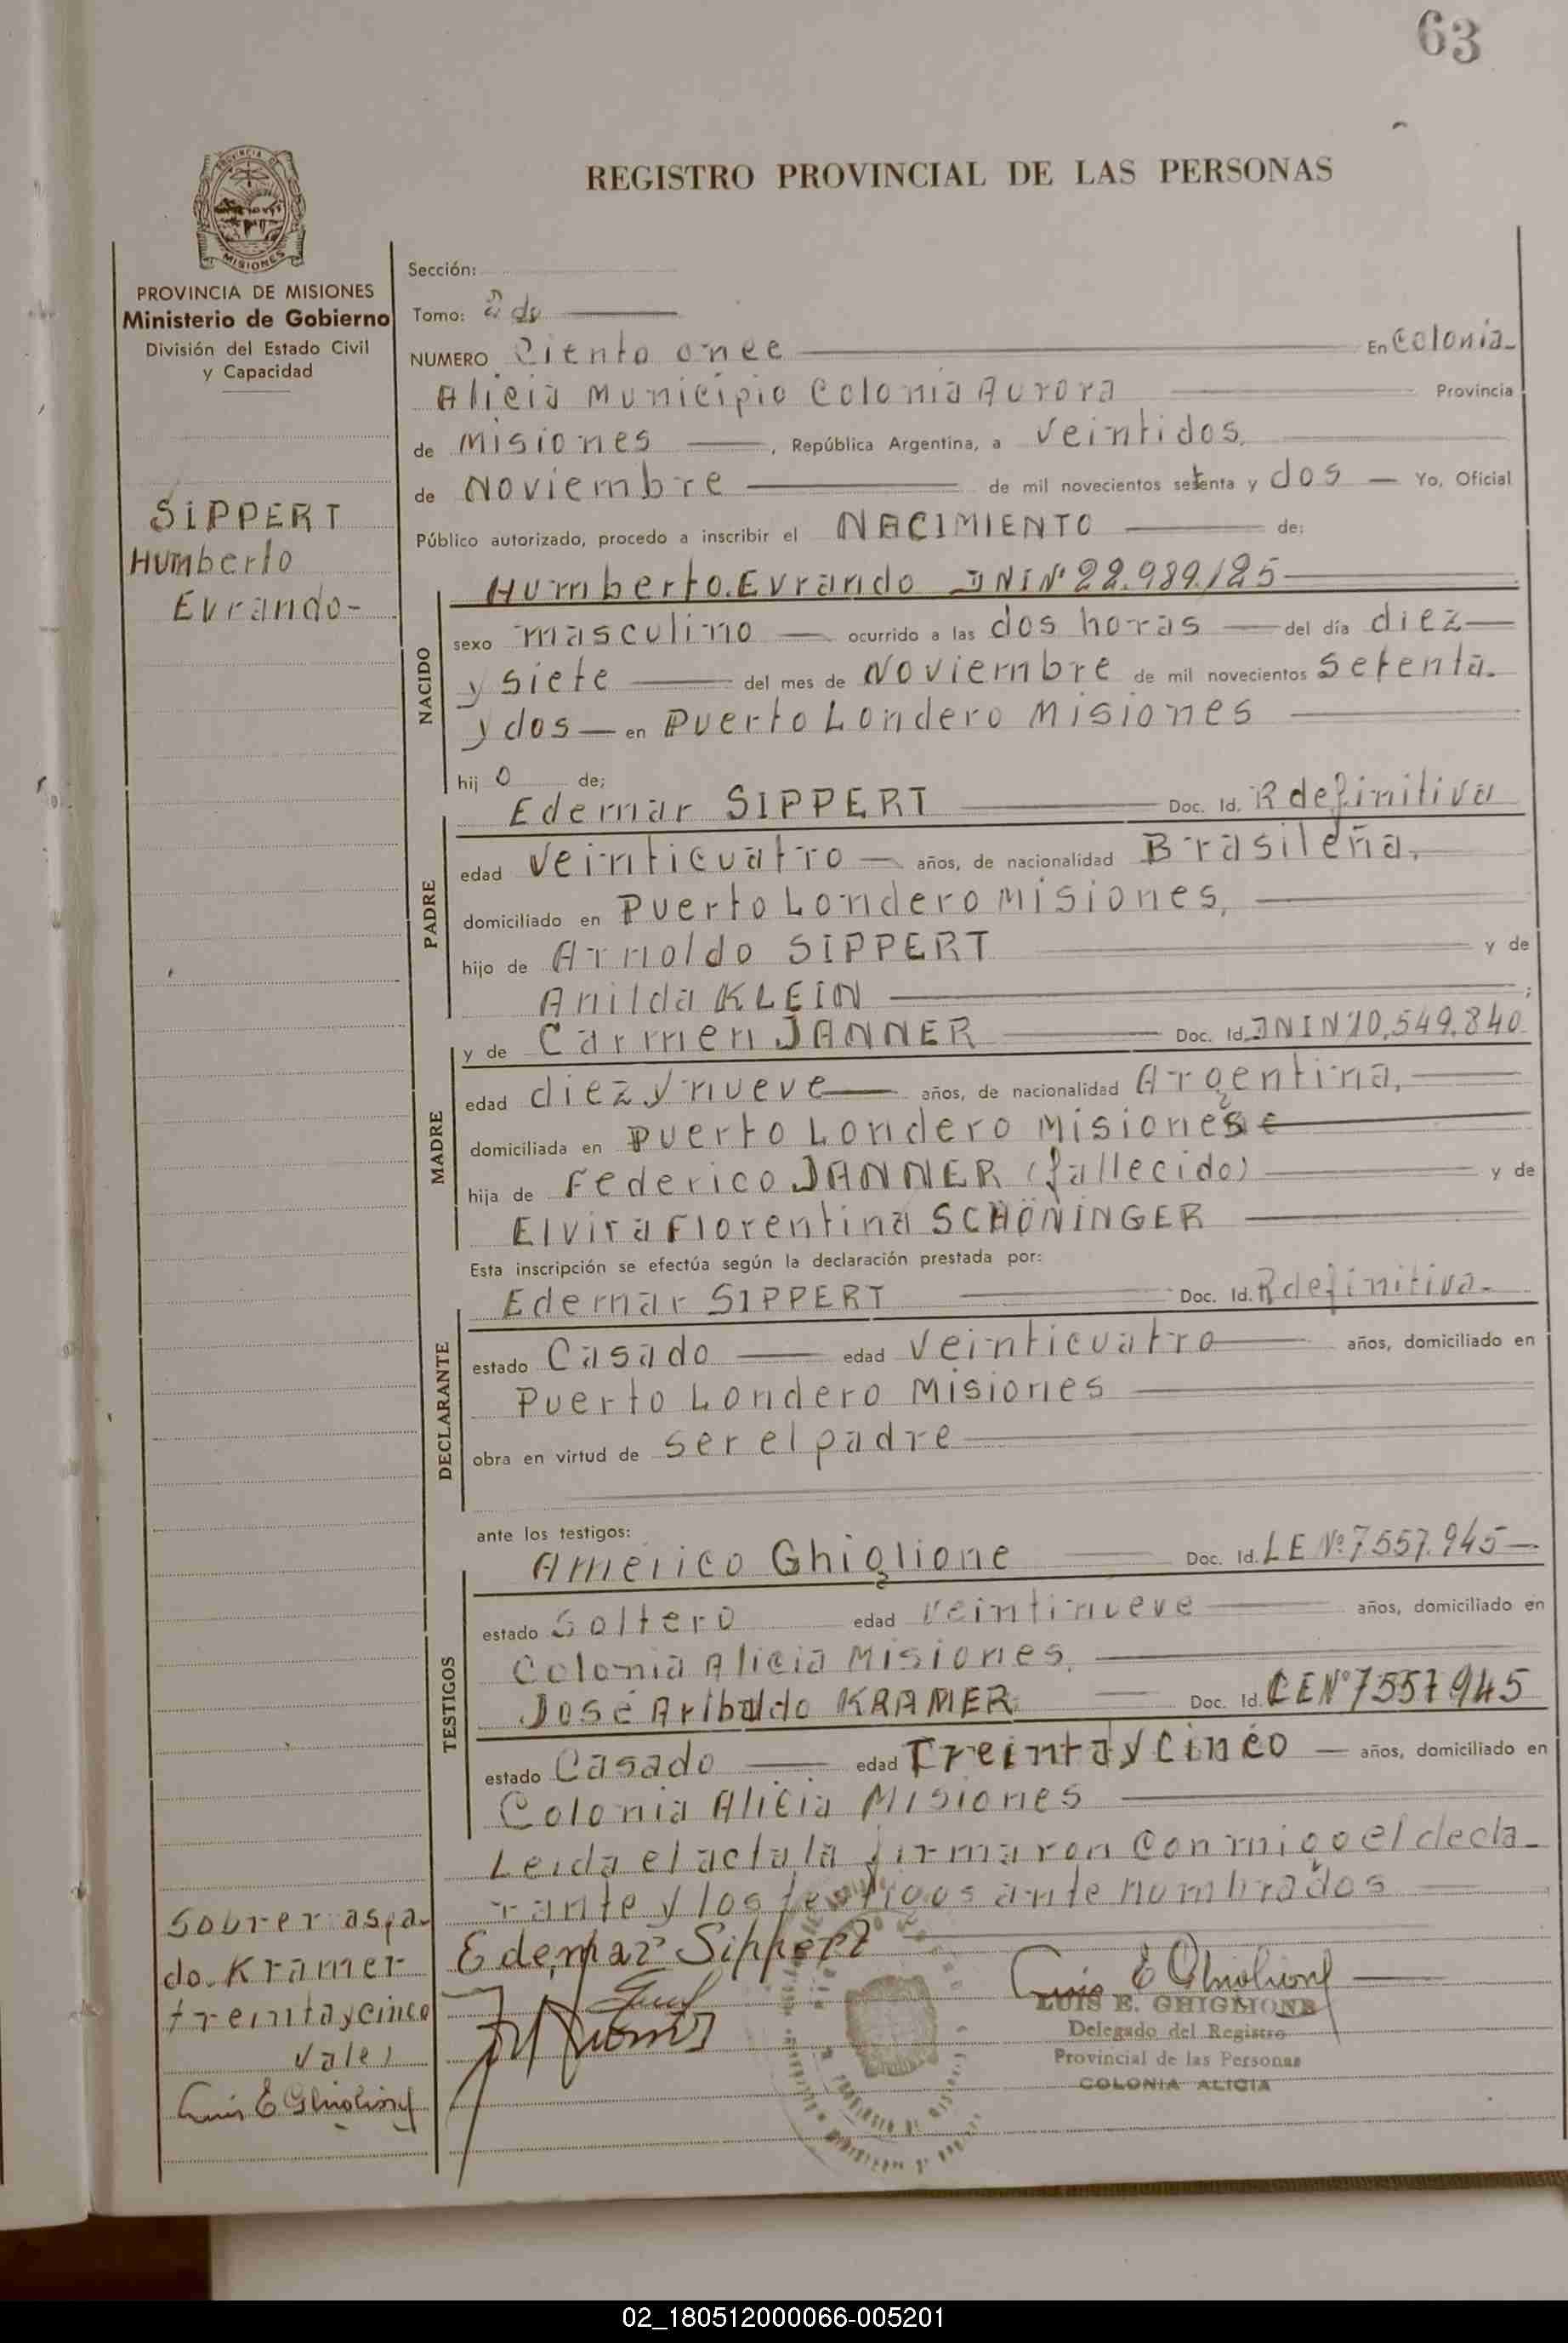 63
REGISTRO PROVINCIAL DE LAS PERSONAS
PROVINCIA DE MISIONES
Ministerio de Gobierno
División del Estado Civil
y Capacidad
SIPPERT
Humberto
Evrando-
Sección:
Tomo: 2do
NUMERO Ciento once En Colonia
Alicia Municipio Colonia Aurora Provincia
de Misiones, República Argentina, a veintidos,
de Noviembre de mil novecientos setenta y dos Yo, Oficial
Público autorizado, procedo a inscribir el NACIMIENTO de:
NACIDO
Humberto Evrando DNI Nº 22.989.125
sexo masculino ocurrido a las dos horas del día diez
y siete del mes de Noviembre de mil novecientos setenta
y dos en Puerto Londero Misiones
hijo de:
PADRE
Edemar SIPPERT Doc. Id. R definitiva
edad veinticuatro años, de nacionalidad Brasileña,
domiciliado en Puerto Londero Misiones,
hijo de Arnoldo SIPPERT y de
Anilda KLEIN ;
MADRE
y de Carmen JANNER Doc. Id. DNI Nº 10.549.840
edad diez y nueve años, de nacionalidad Argentina,
domiciliada en Puerto Londero Misiones
hija de Federico JANNER (fallecido) y de
Elvira Florentina SCHÖNINGER
Esta inscripción se efectúa según la declaración prestada por:
DECLARANTE
Edemar SIPPERT Doc. Id. R definitiva
estado Casado edad veinticuatro años, domiciliado en
Puerto Londero Misiones
obra en virtud de ser el padre
ante los testigos:
TESTIGOS
Américo Ghiglione Doc. Id. LE Nº 7.557.945
estado Soltero edad veintinueve años, domiciliado en
Colonia Alicia Misiones,
José Aribaldo KRAMER Doc. Id. Nº 7557945
estado Casado edad Treinta y Cinco años, domiciliado en
Colonia Alicia Misiones
Leida el acta la firmaron conmigo el decla-
rante y los testigos ante nombrados
Edemar Sippert
Luis E Ghiglione
LUIS E. GHIGLIONE
Delegado del Registro
Provincial de las Personas
COLONIA ALICIA
Sobrer aspa-
do. Kramer
treinta y cinco
vale,
Luis E Ghiglione
02_180512000066-005201